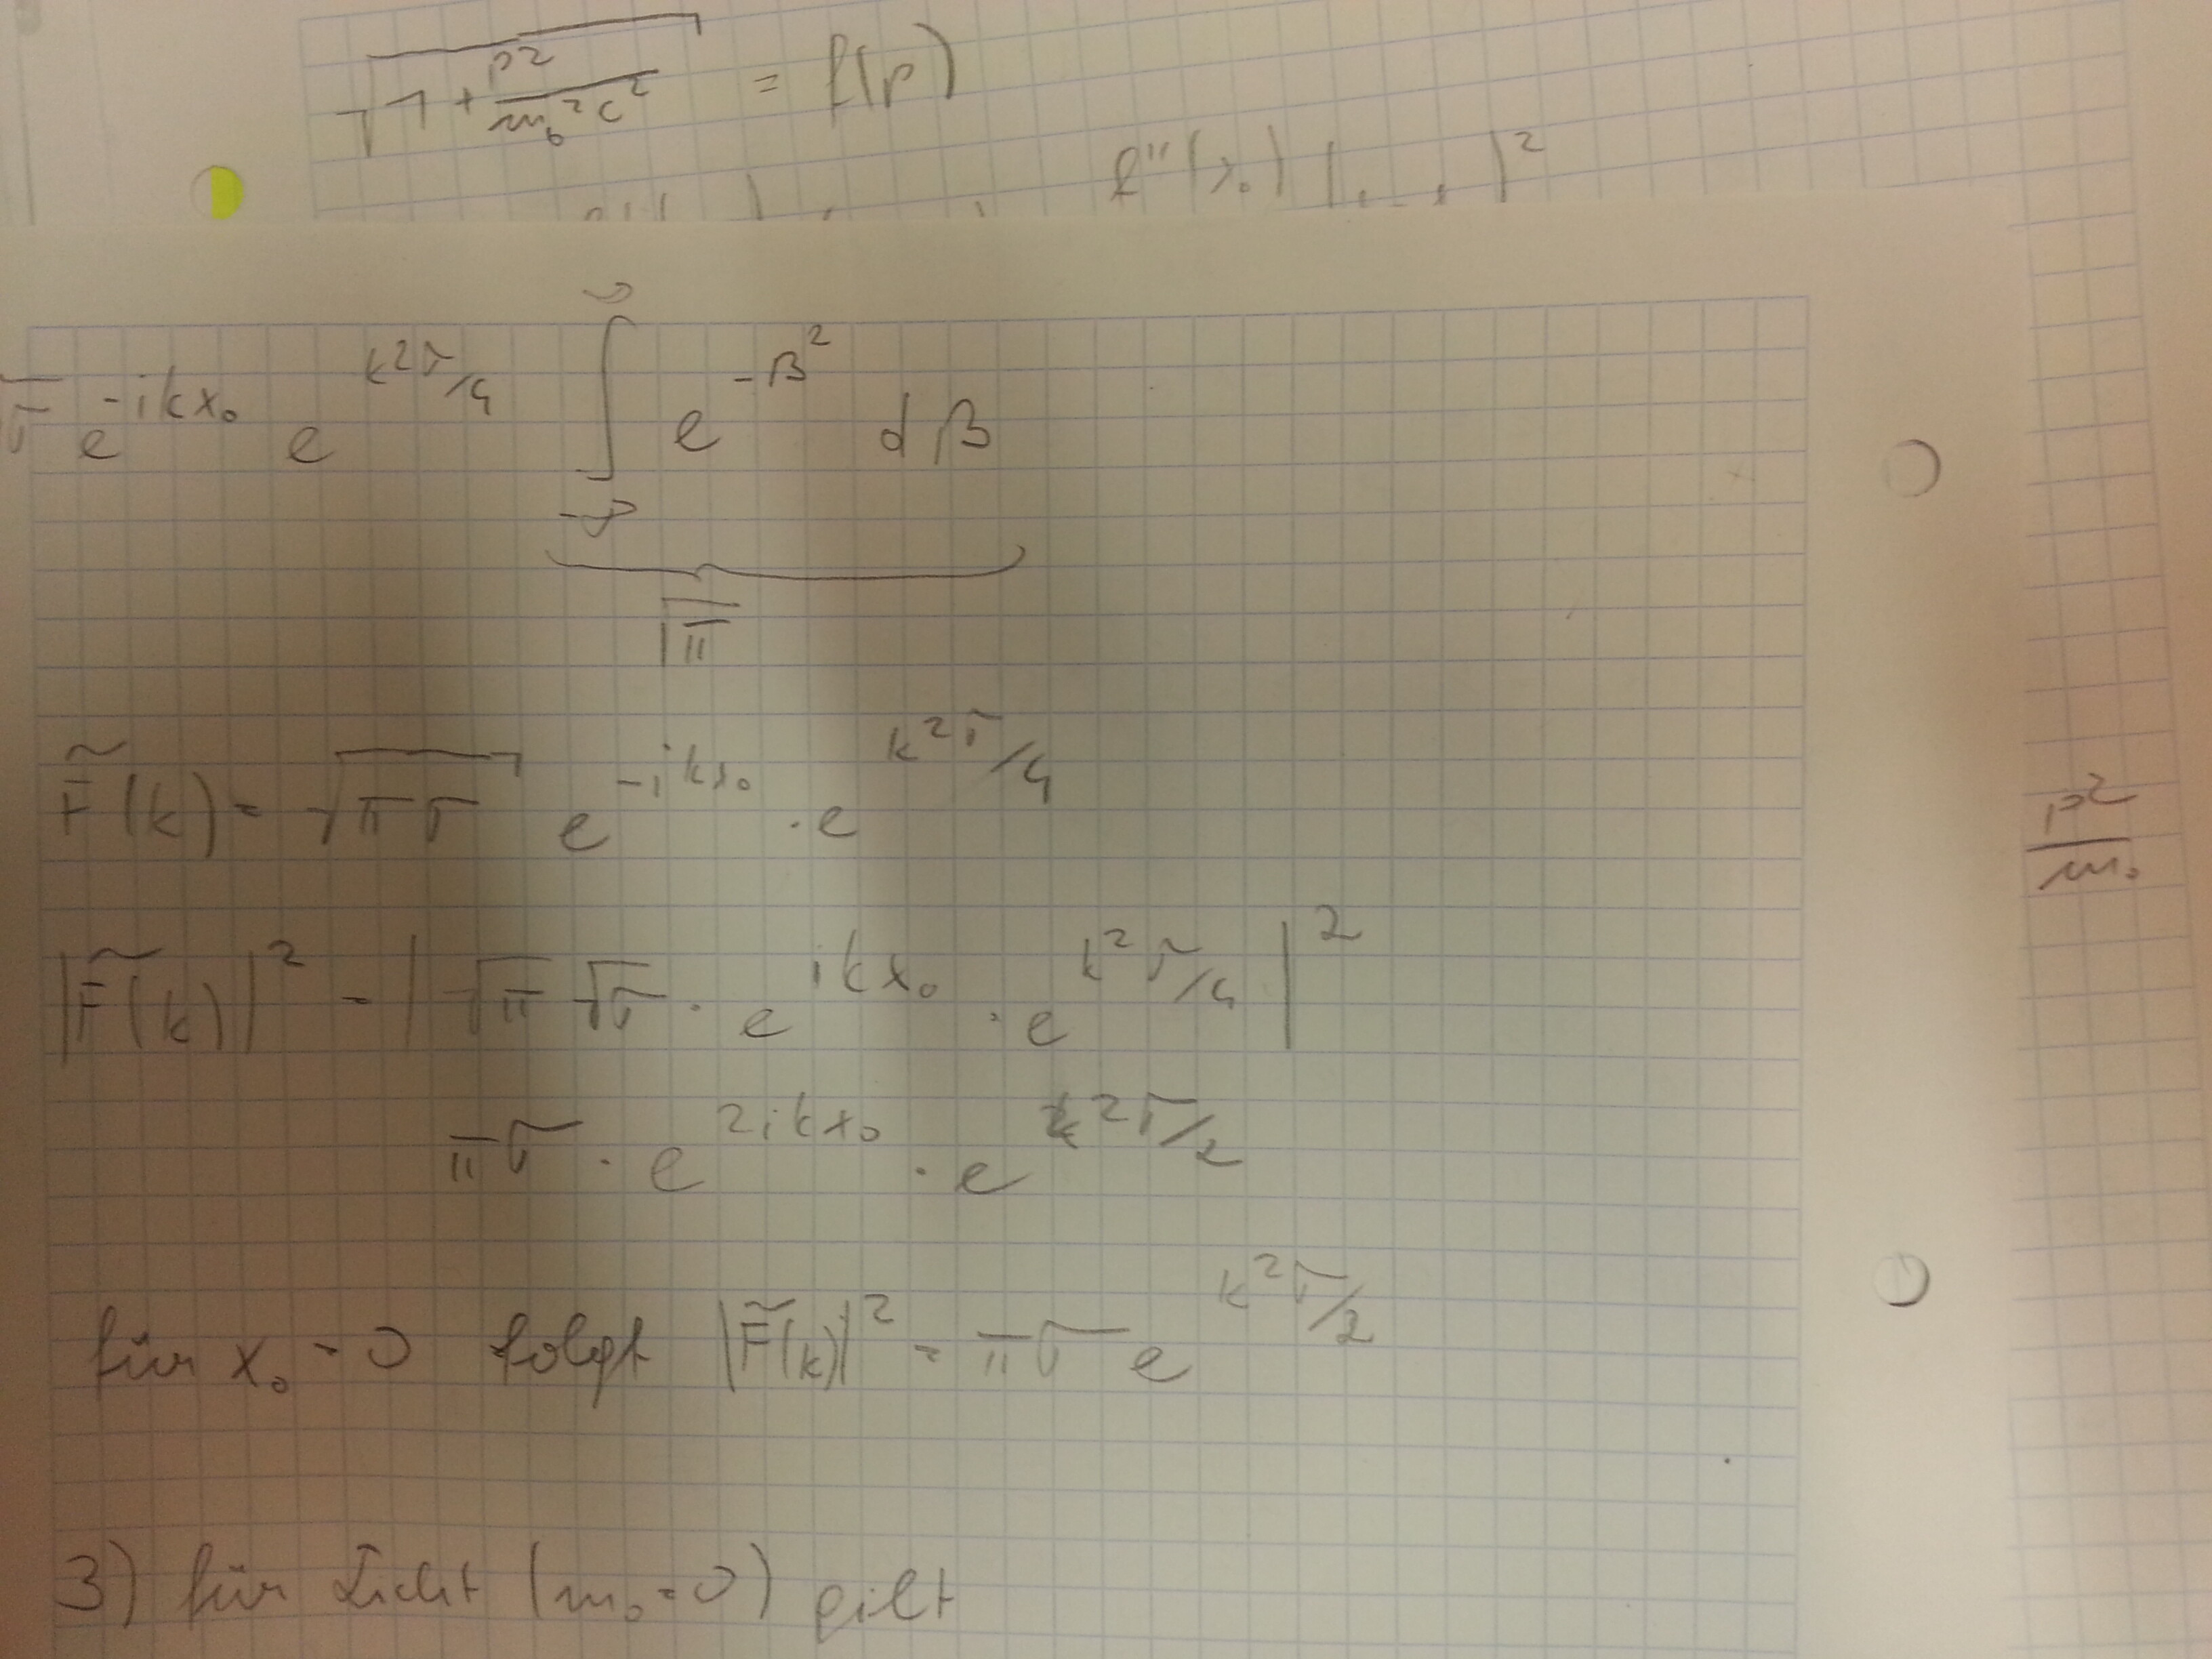 √(1 + p²/(m₀²c²)) = f(p)
f''(x₀)
√σ e^(-ikx₀) e^(k²σ/4) ∫_(-∞)^∞ e^(-β²) dβ
√π
F̃(k) = √(πσ) e^(-ikx₀) · e^(k²σ/4)
p²/m₀
|F̃(k)|² = |√π √σ · e^(ikx₀) · e^(k²σ/4)|²
πσ · e^(2ikx₀) · e^(k²σ/2)
für x₀ = 0 folgt |F̃(k)|² = πσ e^(k²σ/2)
3) für Licht (m₀=0) gilt